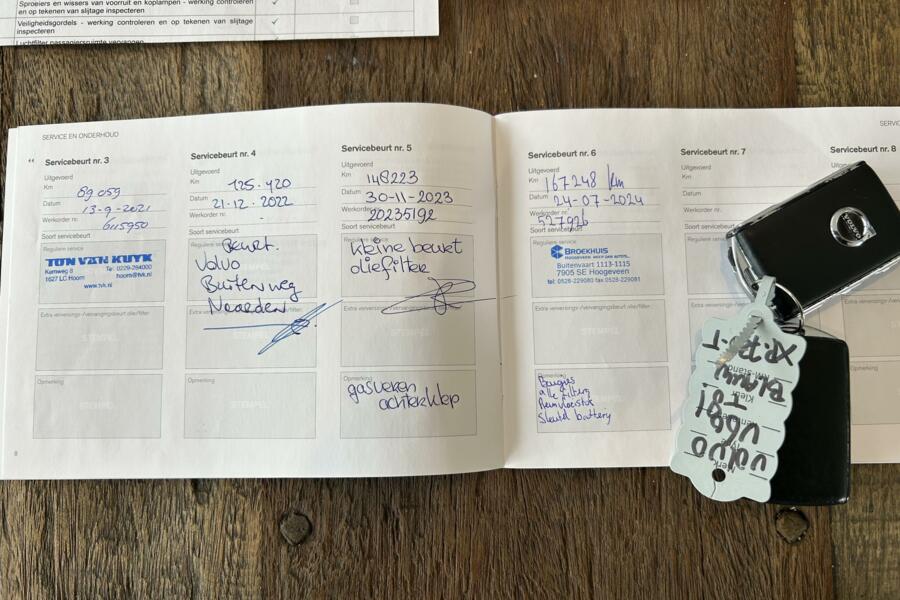 Sproeiers en wissers van voorruit en koplampen - werking controleren
en op tekenen van slijtage inspecteren
Veiligheidsgordels - werking controleren en op tekenen van slijtage
inspecteren
Luchtfilter passagiersruimte vervangen
SERVICE EN ONDERHOUD
Servicebeurt nr. 3
Uitgevoerd
Km 89 059
Datum 13-9-2021
Werkorder nr. 6115950
Soort servicebeurt
Reguliere service
TON VAN KUYK
Kernweg 8 Tel.: 0229-284000
1627 LC Hoorn hoorn@tvk.nl
www.tvk.nl
Extra verversings-/vervangingsbeurt olie/filter
STEMPEL
Opmerking
8
Servicebeurt nr. 4
Uitgevoerd
Km 125.420
Datum 21-12-2022
Werkorder nr. -
Soort servicebeurt
Reguliere service
Beurt.
Volvo
Buitenweg
Naarden
Extra verversings-/vervangingsbeurt olie/filter
Opmerking
STEMPEL
Servicebeurt nr. 5
Uitgevoerd
Km 148223
Datum 30-11-2023
Werkorder nr. 20235192
Soort servicebeurt
Reguliere service
kleine beurt
oliefilter
Extra verversings-/vervangingsbeurt olie/filter
STEMPEL
Opmerking
gasveren
achterklep
Servicebeurt nr. 6
Uitgevoerd
Km 167248 km
Datum 24-07-2024
Werkorder nr.
527926
Soort servicebeurt
Reguliere service
BROEKHUIS
Buitenvaart 1113-1115
7905 SE Hoogeveen
tel: 0528-229080 fax 0528-229081
Extra verversings-/vervangingsbeurt olie/filter
STEMPEL
Opmerking
Bougies
alle filters
Remvloeistof
Sleutel battery
Servicebeurt nr. 7
Uitgevoerd
Km
Datum
Werkorder nr.
Soort servicebeurt
Reguliere service
Servicebeurt nr. 8
VOLVO
Merk
VOLVO
V60
T8
Kleur
BLAUW
KM-stand